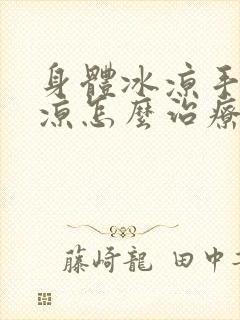 身體冰凉手
凉怎麼治療
藤崎龍 田中